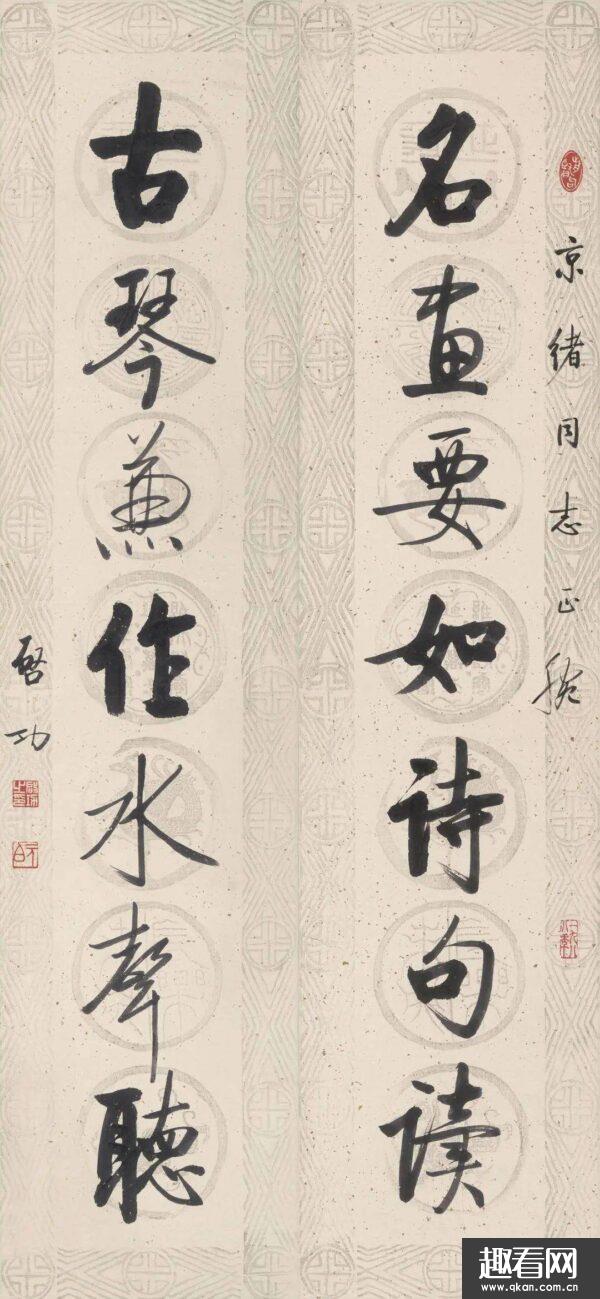 京绪同志正腕
名画要如诗句读
古琴兼作水聲聽
啓功
趣看网
www.qkan.com.cn